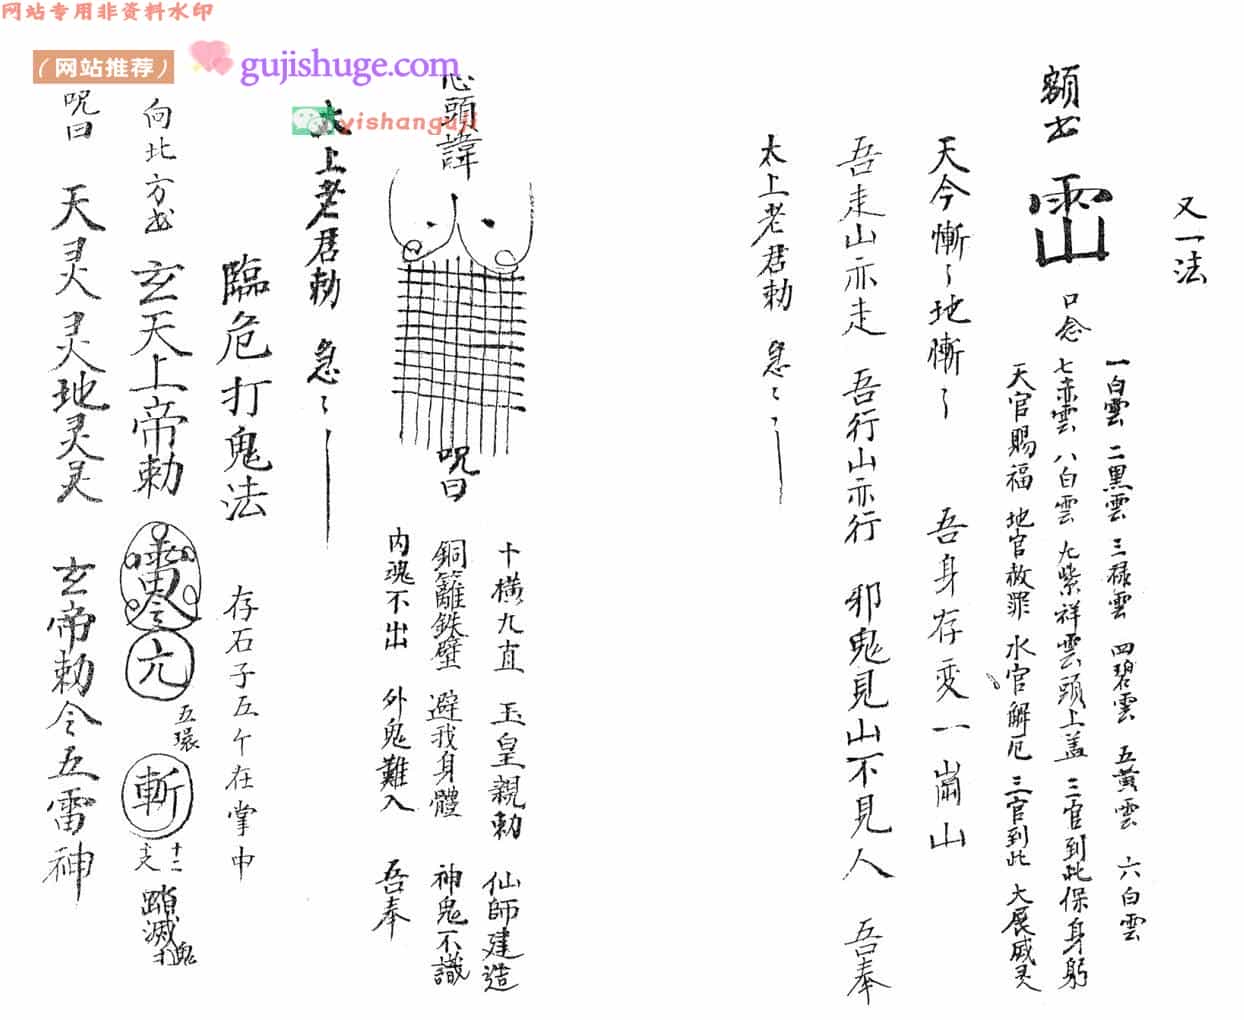 网站专用非资料水印
（网站推荐）
gujishuge.com
yishanguji
又一法
額書
口念
一白雲 二黑雲 三祿雲 四碧雲 五黃雲 六白雲
七赤雲 八白雲 九紫祥雲頭上盖 三官到此保身躬
天官賜福 地官赦罪 水官解厄 三官到此 大展威灵
天今慚〻地慚〻 吾身存变一崗山
吾走山亦走 吾行山亦行 邪鬼見山不見人 吾奉
太上老君勅 急〻
心頭諱
呪曰
十橫九直 玉皇親勅 仙師建造
銅籬鉄壁 避我身體 神鬼不識
內魂不出 外鬼難入 吾奉
太上老君勅 急〻
臨危打鬼法 存石子五个在掌中
向北方書 玄天上帝勅
亢
五環
斬
十二
滅
鬼
呪曰 天灵灵地灵灵 玄帝勅令五雷神